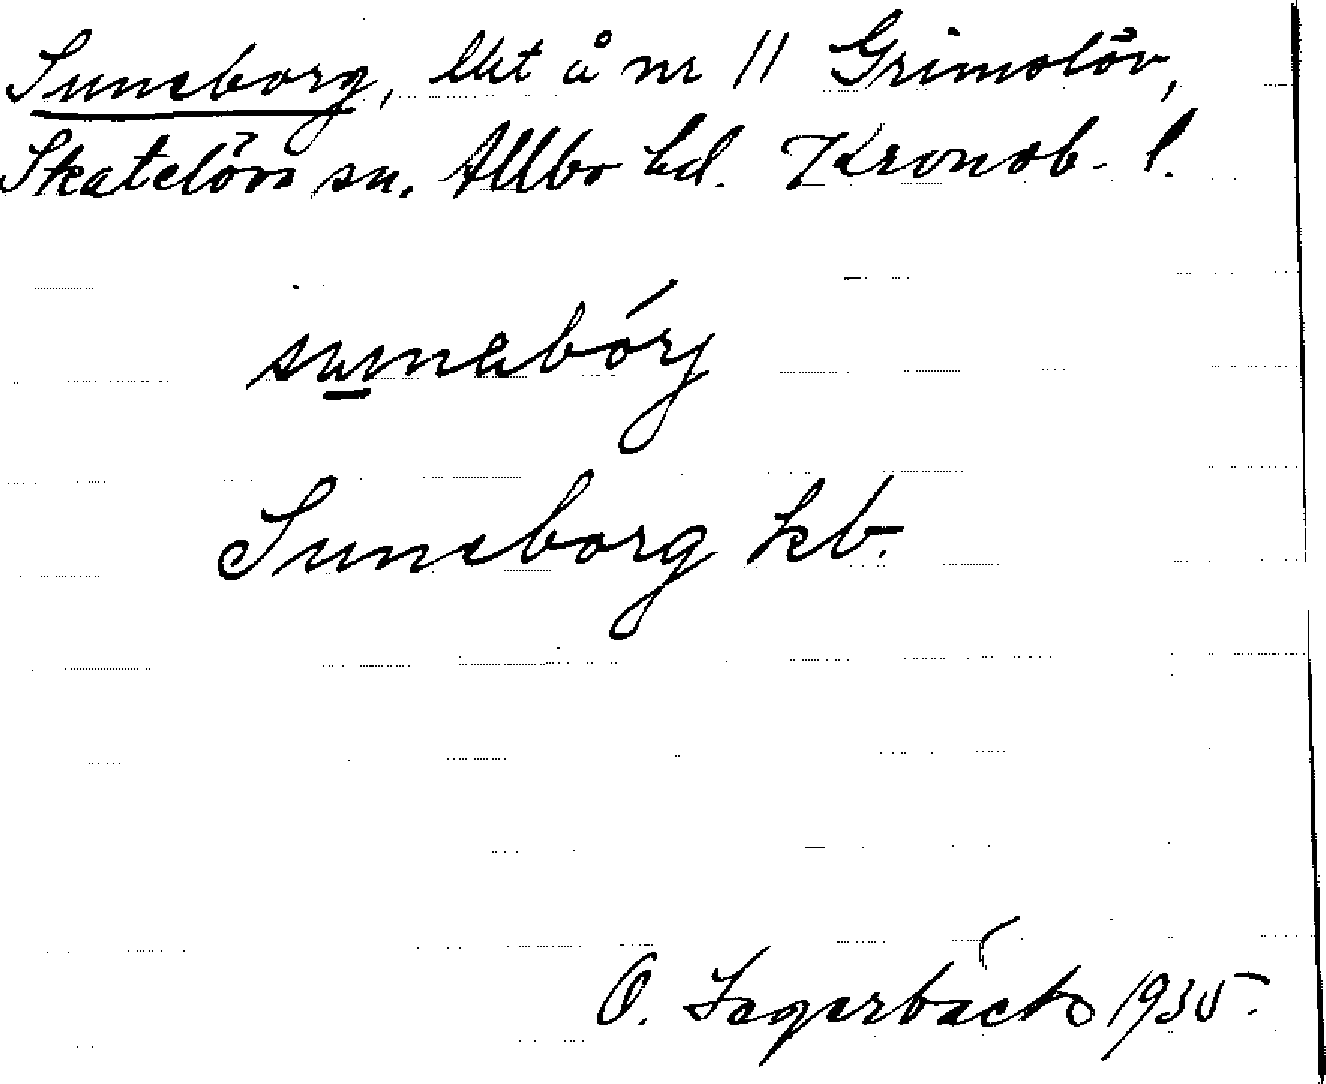 Suneborg, lkt å nr 11 Grimslöv,
Skatelövs sn. Allbo hd. Kronob. l.
sunabórj
Suneborg kb.
O. Fagerbäck 1935.